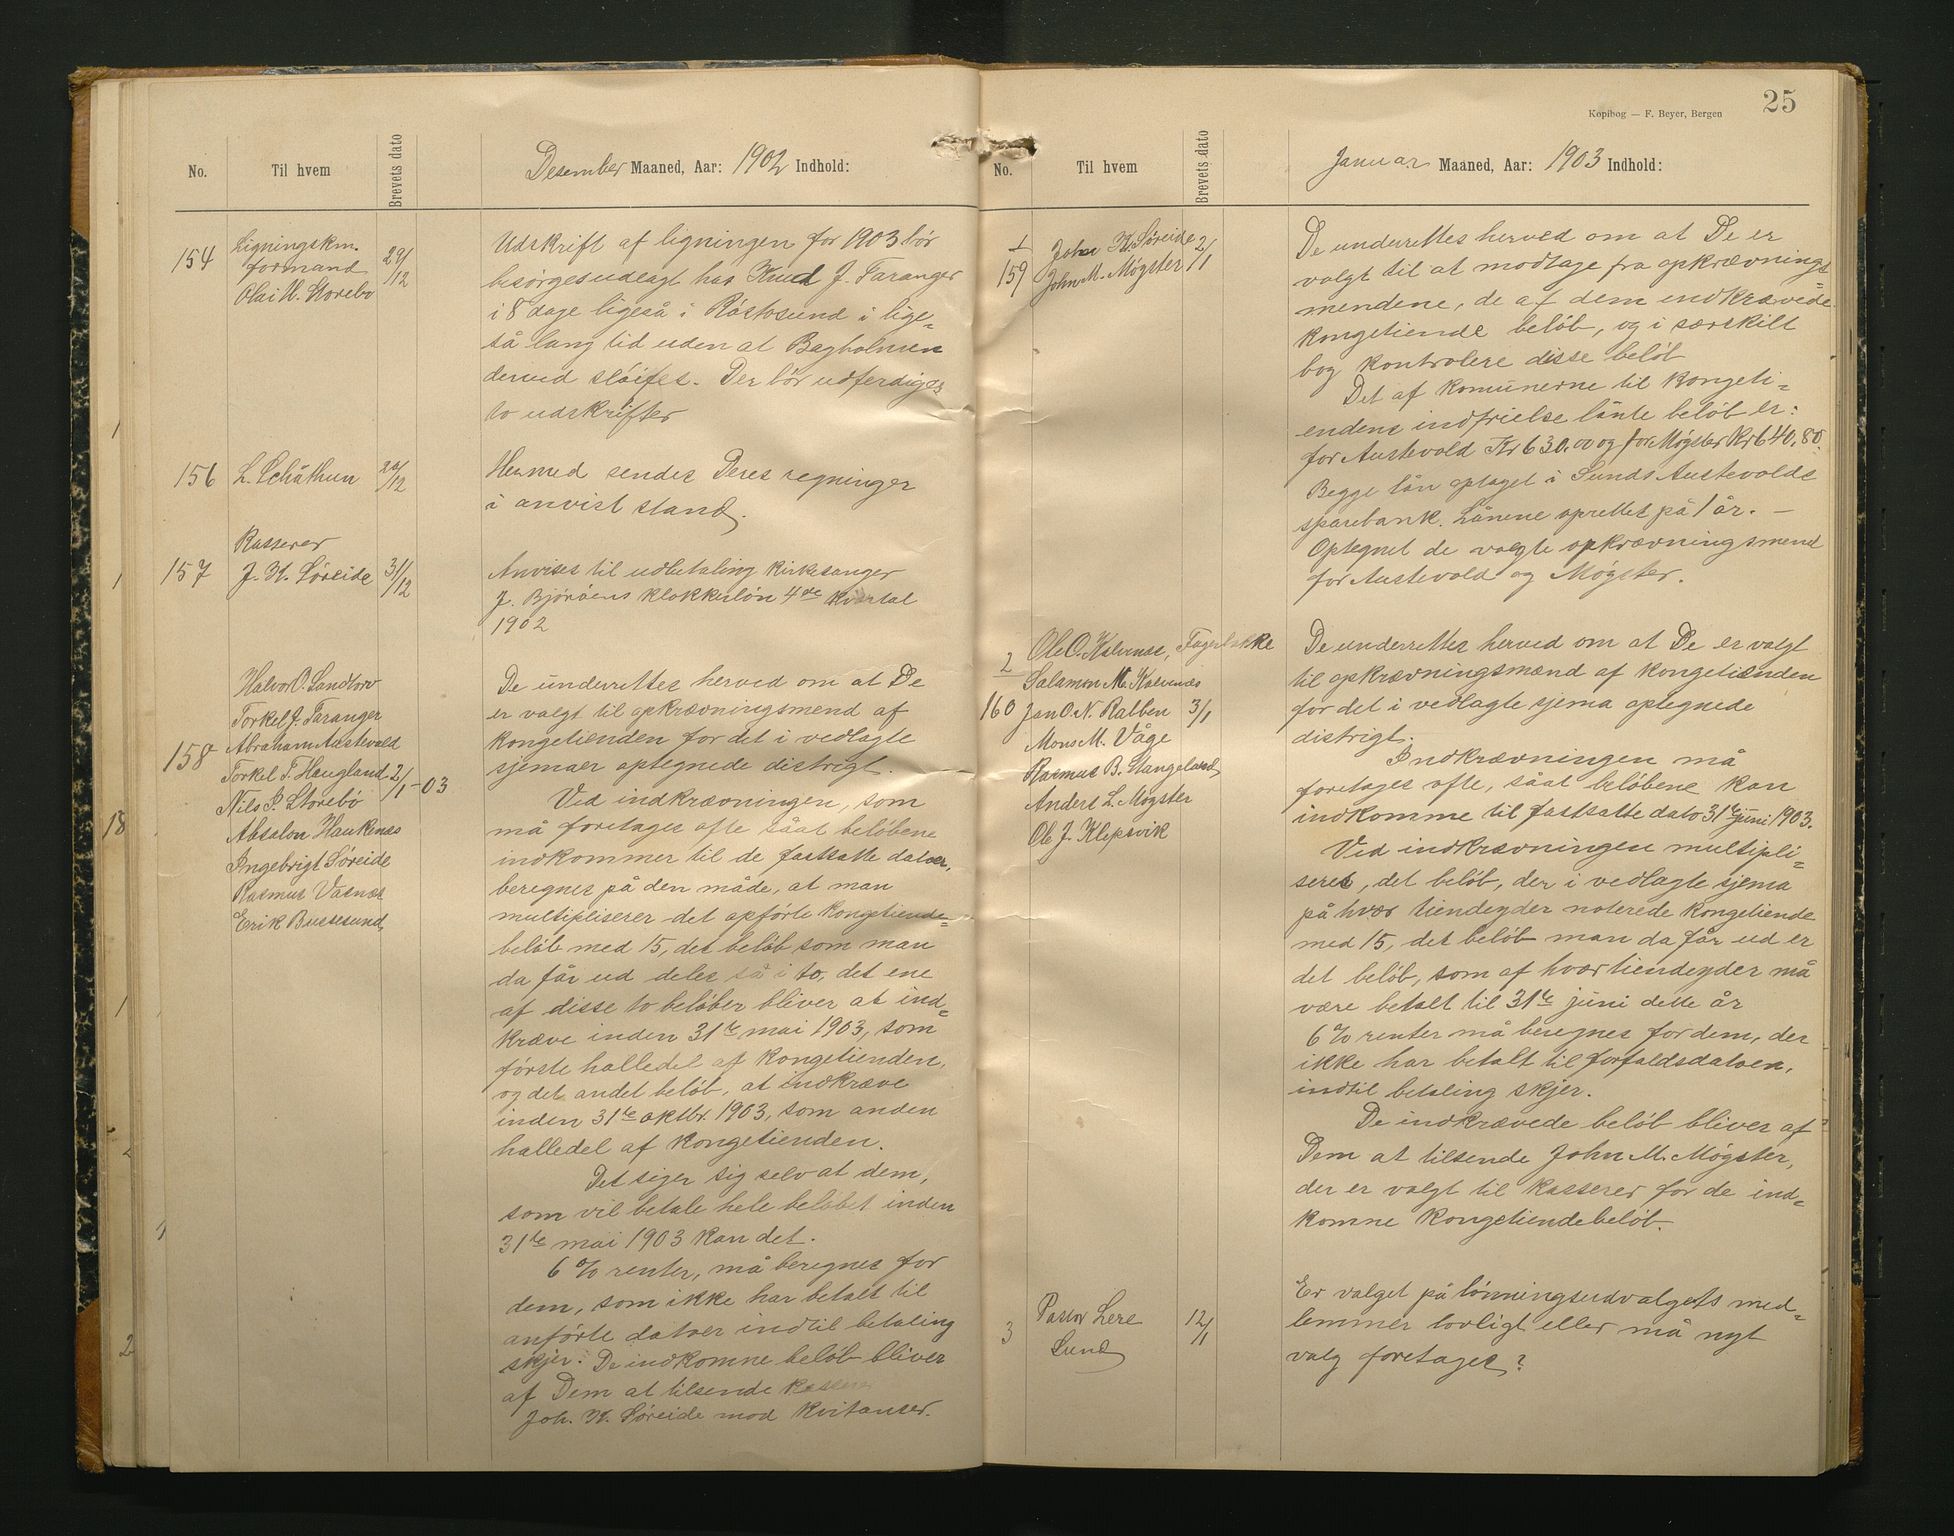 No. Til hvem Brevets dato Desember Maaned, Aar: 1902 Indhold:
154 Ligningskm. formand Olai H. Storebø 29/12
Udskrift af ligningen for 1903 bør
besørges udlagt hos Knud J. Taranger
i 8 dage ligeså i Röstsund i lige=
så lang tid uden at Bagholmen
derved sløifes. Der bør udferdiges
to udskrifter
156 L. Schåthun 20/12
Hermed sendes Deres regninger
i anvist stand.
157 Kasserer J. H. Søreide 31/12
Anvises til udbetaling kirkesanger
J. Björöens klokkerløn 4de kvartal
1902
158 2/1-03
Halvor O. Sandtorv
Torkel J. Taranger
Abraham Austevold
Torkel T. Haugland
Nils P. Storebö
Absalon Haukenes
Ingebrigt Søreide
Rasmus Vasnes
Erik Bussesund
De underrettes herved om at De
er valgt til opkrævningsmend af
kongetienden for det i vedlagte
sjemaer optegnede distrigt.
Ved indkrævningen, som
må foretages ofte såat beløbene
indkommer til de fastsatte datoer,
beregnes på den måde, at man
multipliserer det opførte kongetiende=
beløb med 15, det beløb som man
da får ud deles så i to, det ene
af disse to beløber bliver at ind=
kræve inden 31te mai 1903, som
første halledel af kongetienden,
og det andet beløb, at indkræve
inden 31te oktbr. 1903, som anden
halledel af kongetienden.
Det siger sig selv at dem,
som vil betale hele beløbet inden
31te mai 1903 kan det.
6 % renter, må beregnes for
dem, som ikke har betalt til
anførte datoer indtil betaling
skjer. De indkomne beløb bliver
af Dem at tilsende kasserer
Joh. H. Søreide mod kvitanser.
Kopibog — F. Beyer, Bergen 25
No. Til hvem Brevets dato Januar Maaned, Aar: 1903 Indhold:
1/159 John H. Søreide John M. Møgster 2/1
De underrettes herved om at De er
valgt til at modtage fra opkrævnings=
mendene, de af dem indkrævede
kongetiende beløb, og i særskilt
bog kontrolere disse beløb
Det af komunerne til kongeti=
endens indfrielse lånte beløb er:
for Austevold Kr 630.00 og for Møgster Kr 640.80
Begge lån optaget i Sunds Austevolds
sparebank. Lånene oprettet på 1 år. –
Optegnet de valgte opkrævningsmend
for Austevold og Møgster.
2/160 3/1
Ole O. Kalvenes, Fagerbakke
Salamon M. Kalvenæs
Jan O. N. Rabben
Mons M. Våge
Rasmus B. Stangeland
Anders L. Møgster
Ole J. Klepsvik
De underretter herved om at De er valgt
til opkrævningsmænd af kongetienden
for det i vedlagte sjema optegnede
distrigt.
Indkrævningen må
foretages ofte, såat beløbene kan
indkomme til fastsatte dato 31te juni 1903.
Ved indkrævningen multipli=
seres, det beløb, der i vedlagte sjema
på hvær tiendeyder noterede kongetiende
med 15, det beløb man da får ud er
det beløb, som af hvær tiendeyder må
være betalt til 31te juni dette år
6 % renter må beregnes for dem, der
ikke har betalt til forfaldsdatoen,
indtil betaling skjer.
De indkrævede beløb bliver af
Dem at tilsende John M. Møgster,
der er valgt til kasserer for de ind=
komne kongetiendebeløb.
3 Pastor Lere Sund 12/1
Er valget på lønningsudvalgets med=
lemmer lovligt eller må nyt
valg foretages?